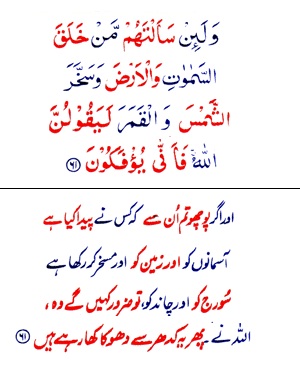 وَلَئِنْ سَاَلْتَهُمْ مَّنْ خَلَقَ
السَّمٰوٰتِ وَالْاَرْضَ وَسَخَّرَ
الشَّمْسَ وَ الْقَمَرَ لَيَقُوْلُنَّ
اللّٰهُ ۚ فَاَنّٰى يُؤْفَكُوْنَ ﴿۶۱﴾
اور اگر پوچھو تم اُن سے کہ کس نے پیدا کیا ہے
آسمانوں کو اور زمین کو اور مسخر کر رکھا ہے
سُورج کو اور چاند کو، تو ضرور کہیں گے وہ ،
اللہ نے ۔ پھر یہ کدھر سے دھوکا کھا رہے ہیں ﴿۶۱﴾